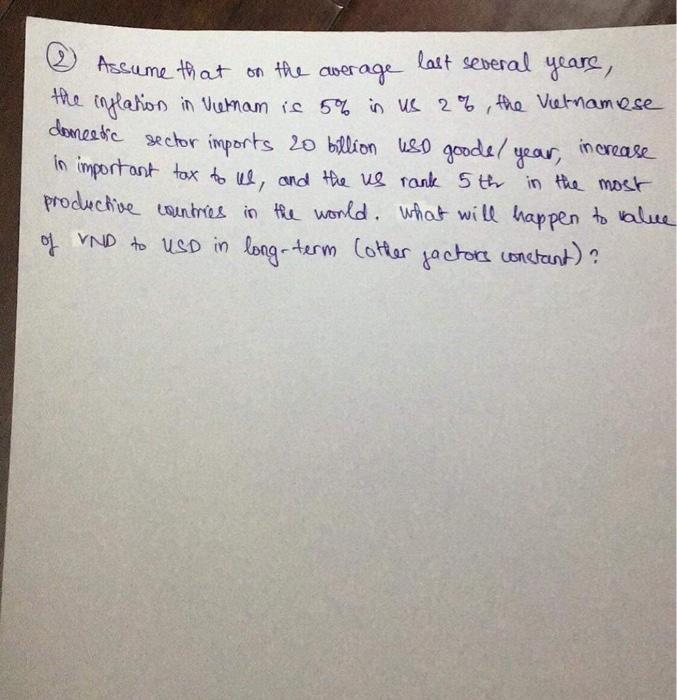 ② Assume that on the average last several years,
the inflation in Vietnam is 5% in US 2%, the Vietnamese
domestic sector imports 20 billion USD goods/year, increase
in important tax to US, and the US rank 5th in the most
productive countries in the world. What will happen to value
of VND to USD in long-term (other factors constant)?